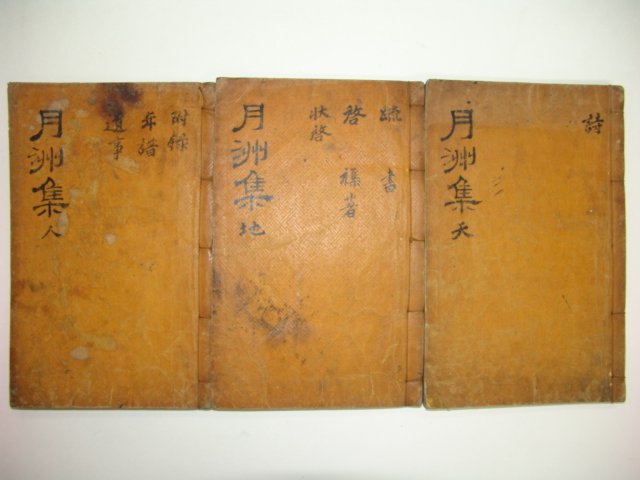 月洲集 天
詩
月洲集 地
疏 書
啓 襍著
狀啓
月洲集 人
附錄
年譜
遺事